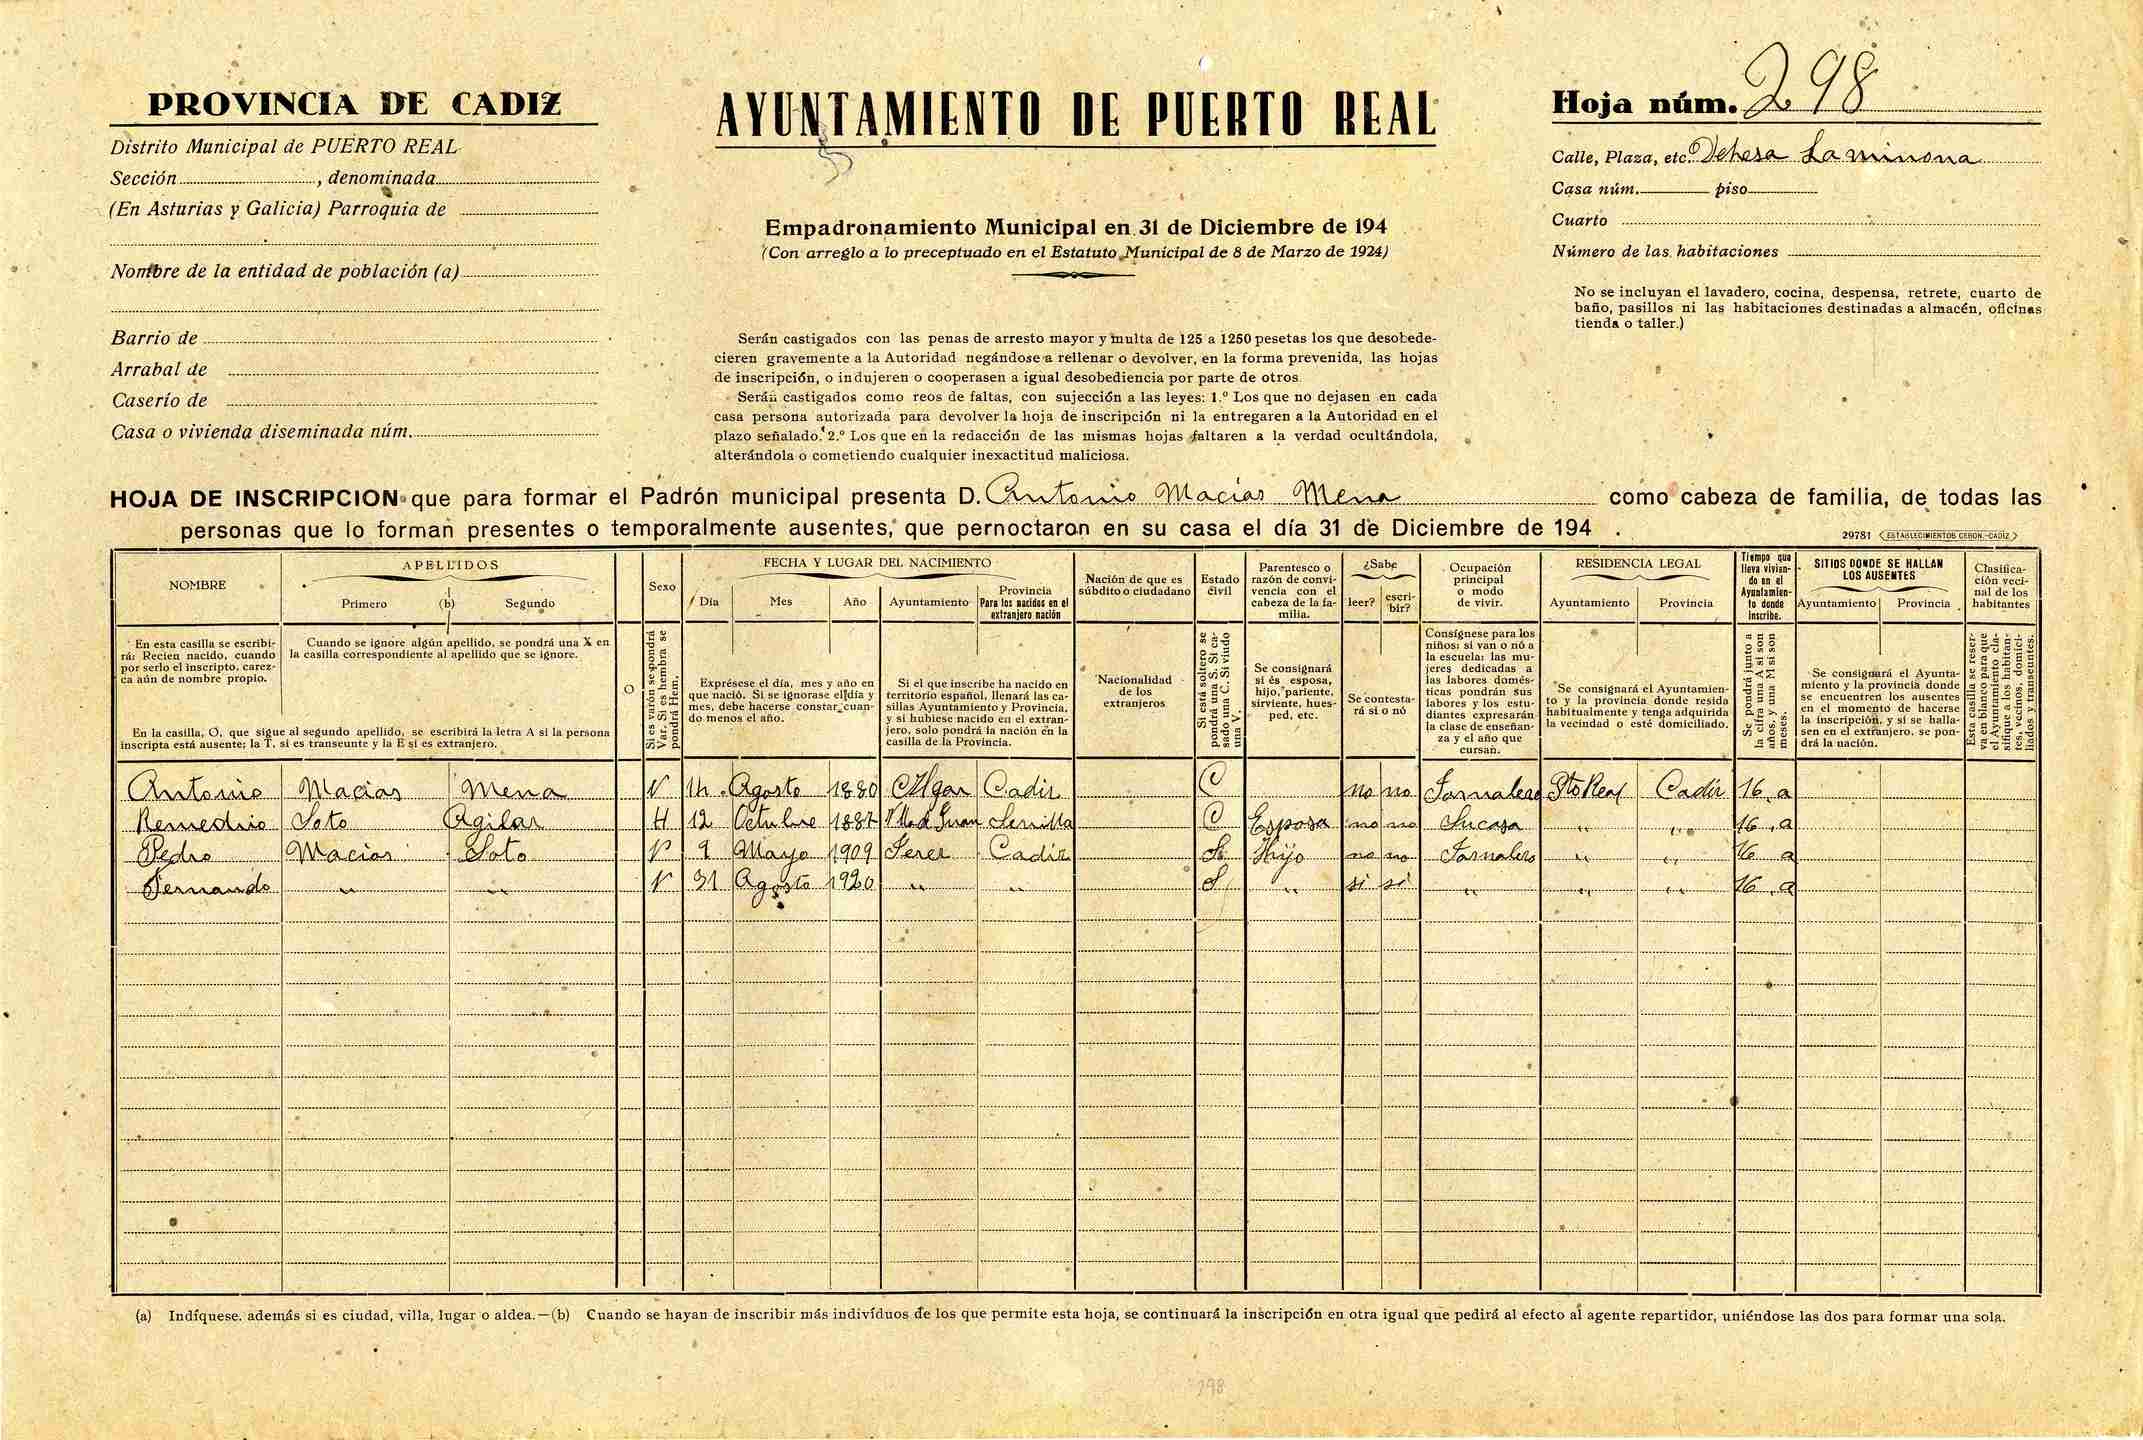 PROVINCIA DE CADIZ
Distrito Municipal de PUERTO REAL
Sección , denominada
(En Asturias y Galicia) Parroquia de
Nombre de la entidad de población (a)
Barrio de
Arrabal de
Caserío de
Casa o vivienda diseminada núm.
AYUNTAMIENTO DE PUERTO REAL
Empadronamiento Municipal en 31 de Diciembre de 194
(Con arreglo a lo preceptuado en el Estatuto Municipal de 8 de Marzo de 1924)
Serán castigados con las penas de arresto mayor y multa de 125 a 1250 pesetas los que desobede-
cieren gravemente a la Autoridad negándose a rellenar o devolver, en la forma prevenida, las hojas
de inscripción, o indujeren o cooperasen a igual desobediencia por parte de otros
Serán castigados como reos de faltas, con sujección a las leyes: 1.º Los que no dejasen en cada
casa persona autorizada para devolver la hoja de inscripción ni la entregaren a la Autoridad en el
plazo señalado. 2.º Los que en la redacción de las mismas hojas faltaren a la verdad ocultándola,
alterándola o cometiendo cualquier inexactitud maliciosa.
Hoja núm. 298
Calle, Plaza, etc. Dehesa La minona
Casa núm. piso
Cuarto
Número de las habitaciones
No se incluyan el lavadero, cocina, despensa, retrete, cuarto de
baño, pasillos ni las habitaciones destinadas a almacén, oficinas
tienda o taller.)
HOJA DE INSCRIPCION que para formar el Padrón municipal presenta D. Antonio Macias Mena como cabeza de familia, de todas las
personas que lo forman presentes o temporalmente ausentes, que pernoctaron en su casa el día 31 de Diciembre de 194 .
29781 ESTABLECIMIENTOS CERON.-CADIZ
NOMBRE
APELLIDOS
Primero (b) Segundo
Sexo
FECHA Y LUGAR DEL NACIMIENTO
Día Mes Año Ayuntamiento
Provincia
Para los nacidos en el
extranjero nación
Nación de que es
súbdito o ciudadano
Estado
civil
Parentesco o
razón de convi-
vencia con el
cabeza de la fa-
milia.
¿Sabe
leer? escri-
bir?
Ocupación
principal
o modo
de vivir.
RESIDENCIA LEGAL
Ayuntamiento Provincia
Tiempo que
lleva vivien-
do en el
Ayuntamien-
to donde
inscribe.
SITIOS DONDE SE HALLAN
LOS AUSENTES
Ayuntamiento Provincia
Clasifica-
ción veci-
nal de los
habitantes
En esta casilla se escribi-
rá: Recien nacido, cuando
por serlo el inscripto, carez-
ca aún de nombre propio.
Cuando se ignore algún apellido, se pondrá una X en
la casilla correspondiente al apellido que se ignore.
En la casilla, O, que sigue al segundo apellido, se escribirá la letra A si la persona
inscripta está ausente; la T, si es transeunte y la E si es extranjero.
O
Si es varón se pondrá
Var. Si es hembra se
pondrá Hem.
Exprésese el día, mes y año en
que nació. Si se ignorase el día y
mes, debe hacerse constar cuan-
do menos el año.
Si el que inscribe ha nacido en
territorio español, llenará las ca-
sillas Ayuntamiento y Provincia,
y si hubiese nacido en el extran-
jero, solo pondrá la nación en la
casilla de la Provincia.
Nacionalidad
de los
extranjeros
Si está soltero se
pondrá una S. Si ca-
sado una C. Si viudo
una V.
Se consignará
si és esposa,
hijo, pariente,
sirviente, hues-
ped, etc.
Se contesta-
rá si o nó
Consígnese para los
niños: si van o nó a
la escuela: las mu-
jeres dedicadas a
las labores domés-
ticas pondrán sus
labores y los estu-
diantes expresarán
la clase de enseñan-
za y el año que
cursan.
Se consignará el Ayuntamien-
to y la provincia donde resida
habitualmente y tenga adquirida
la vecindad o esté domiciliado.
Se pondrá junto a
la cifra una A si son
años, y una M si son
meses.
Se consignará el Ayunta-
miento y la provincia donde
se encuentren los ausentes
en el momento de hacerse
la inscripción, y si se halla-
sen en el extranjero, se pon-
drá la nación.
Esta casilla se reser-
va en blanco para que
el Ayuntamiento cla-
sifique a los habitan-
tes, vecinos, domici-
liados y transeuntes.
Antonio Macias Mena V 14 Agosto 1880 Algar Cadiz C no no Jornalero Pto Real Cadiz 16 a
Remedio Soto Agilar H 12 Octubre 1887 Sevilla C Esposa no no Sucasa " " 16 a
Pedro Macias Soto V 9 Mayo 1909 Jerez Cadiz S Hijo no no Jornalero " " 16 a
Fernando " " V 31 Agosto 1920 " " S " si si " " " 16 a
(a) Indíquese. además si es ciudad, villa, lugar o aldea.—(b) Cuando se hayan de inscribir más individuos de los que permite esta hoja, se continuará la inscripción en otra igual que pedirá al efecto al agente repartidor, uniéndose las dos para formar una sola.
298